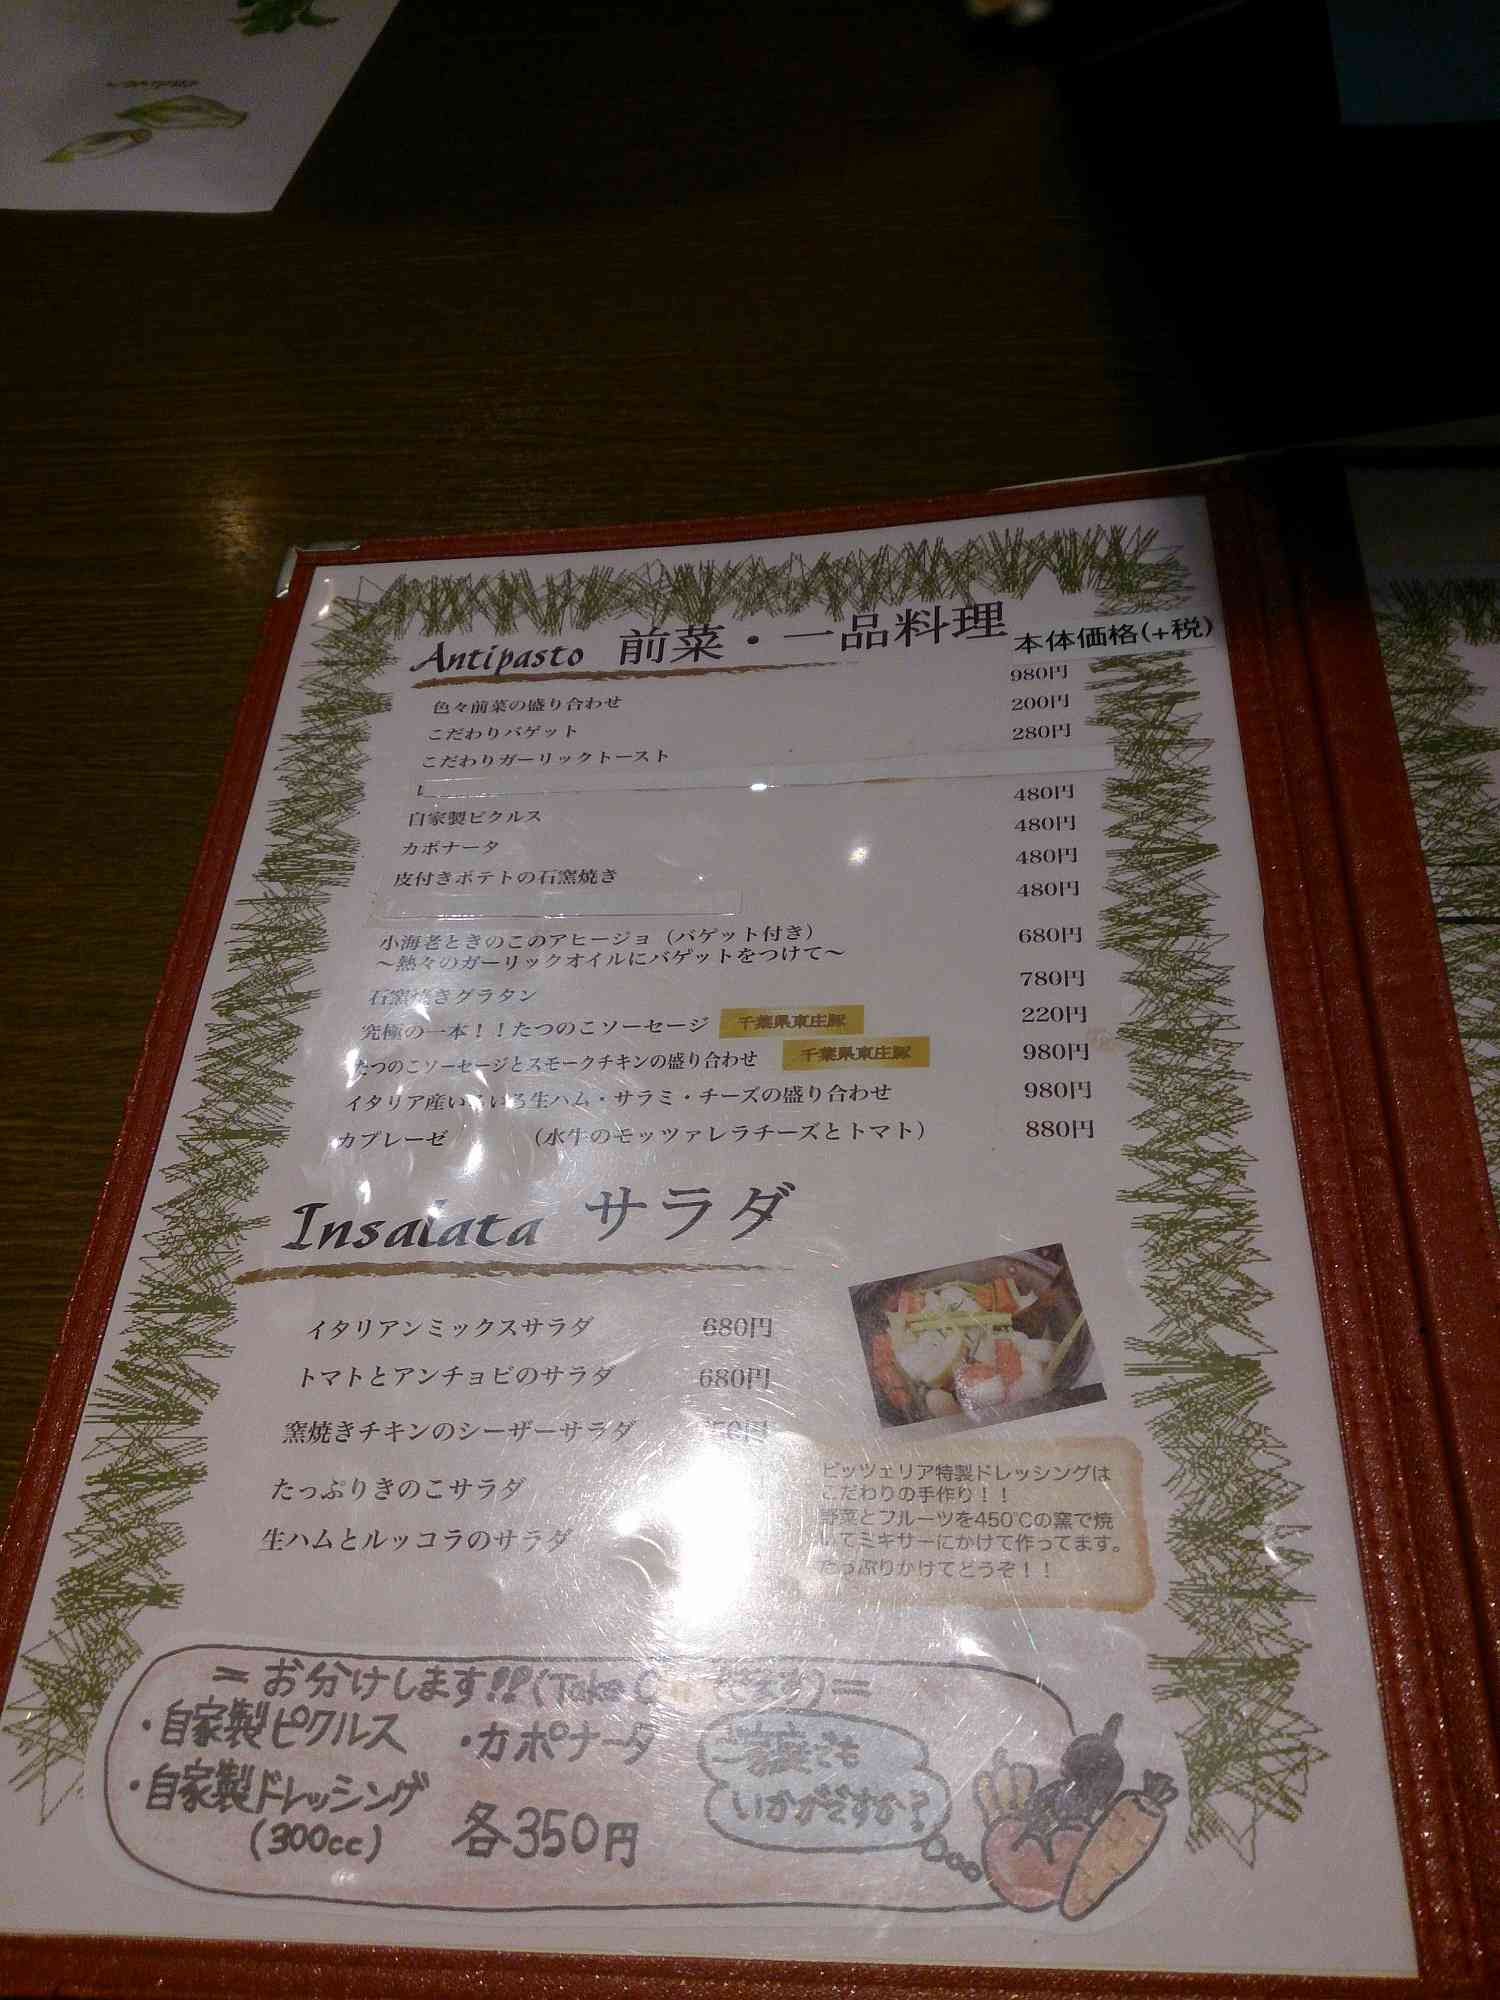 Antipasto 前菜・一品料理 本体価格(+税)
色々前菜の盛り合わせ 980円
こだわりバゲット 200円
こだわりガーリックトースト 280円
自家製ピクルス 480円
カポナータ 480円
皮付きポテトの石窯焼き 480円
480円
小海老ときのこのアヒージョ（バゲット付き） 680円
～熱々のガーリックオイルにバゲットをつけて～
石窯焼きグラタン 780円
究極の一本！！たつのこソーセージ 千葉県東庄豚 220円
たつのこソーセージとスモークチキンの盛り合わせ 千葉県東庄豚 980円
イタリア産いろいろ生ハム・サラミ・チーズの盛り合わせ 980円
カプレーゼ （水牛のモッツァレラチーズとトマト） 880円
Insalata サラダ
イタリアンミックスサラダ 680円
トマトとアンチョビのサラダ 680円
窯焼きチキンのシーザーサラダ
たっぷりきのこサラダ
生ハムとルッコラのサラダ
ピッツェリア特製ドレッシングは
こだわりの手作り！！
野菜とフルーツを450℃の窯で焼
いてミキサーにかけて作ってます。
たっぷりかけてどうぞ！！
＝お分けします!!(Take できます)＝
・自家製ピクルス ・カポナータ
・自家製ドレッシング
(300cc) 各350円
ご家庭でも
いかがですか？